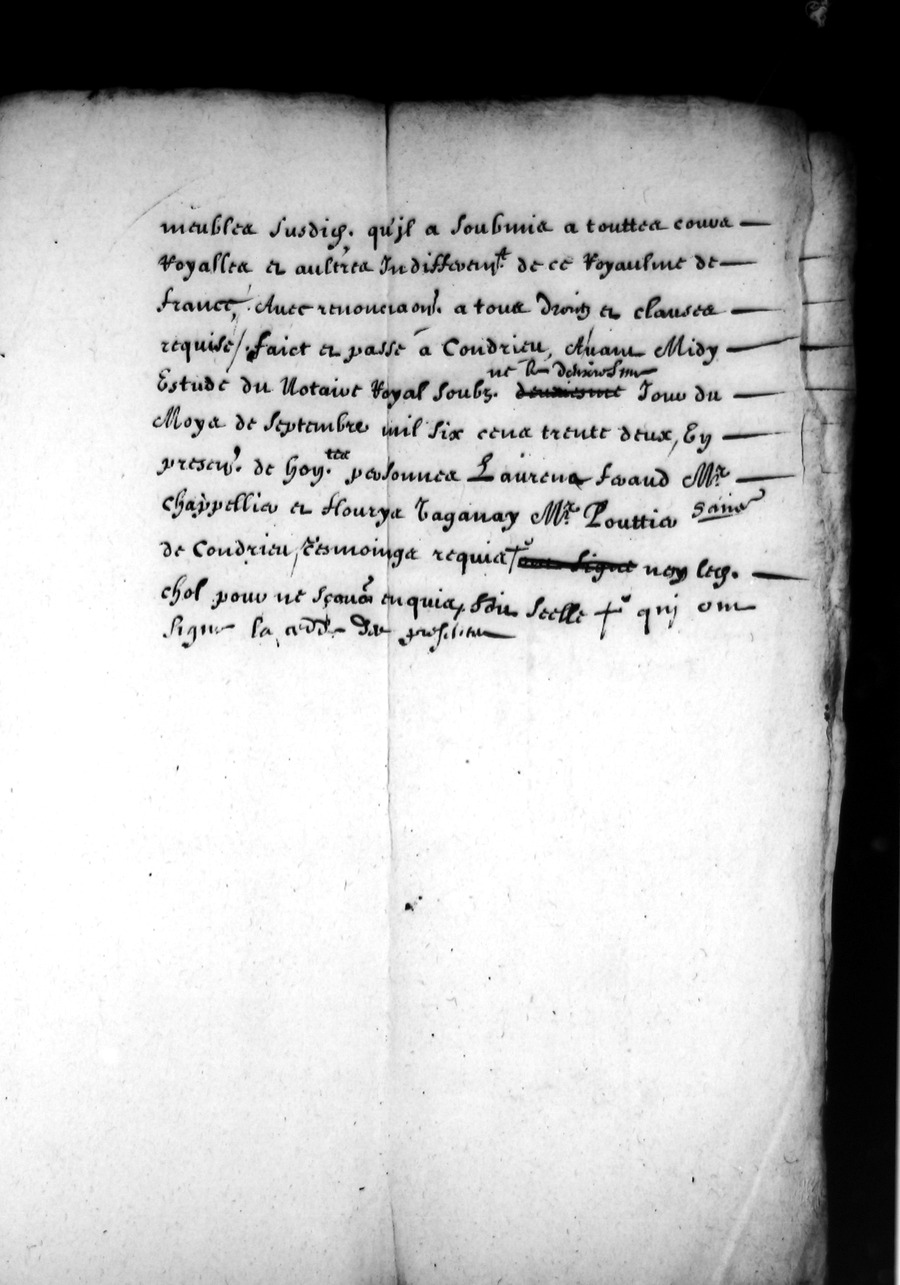 meubles susdicts. qu'jl a soubmis a touttes cours
Royalles et aultres Indifferem.t de ce Royaulme de
france, Avec renonciaons. a tous droictz et clauses
requise / faict et passé a Condrieu, Avant Midy
Estude du Notaire Royal soubz. deuxiesme Jour du
Moys de septembre mil six cens trente deux, En
presen. de hon.tes personnes Laurens feraud M.e
chappellier et flourys M.e Pouttier
de Condrieu, tesmoings requis non led.
chol pour ne sçavoir enquis, qui ont
signe la